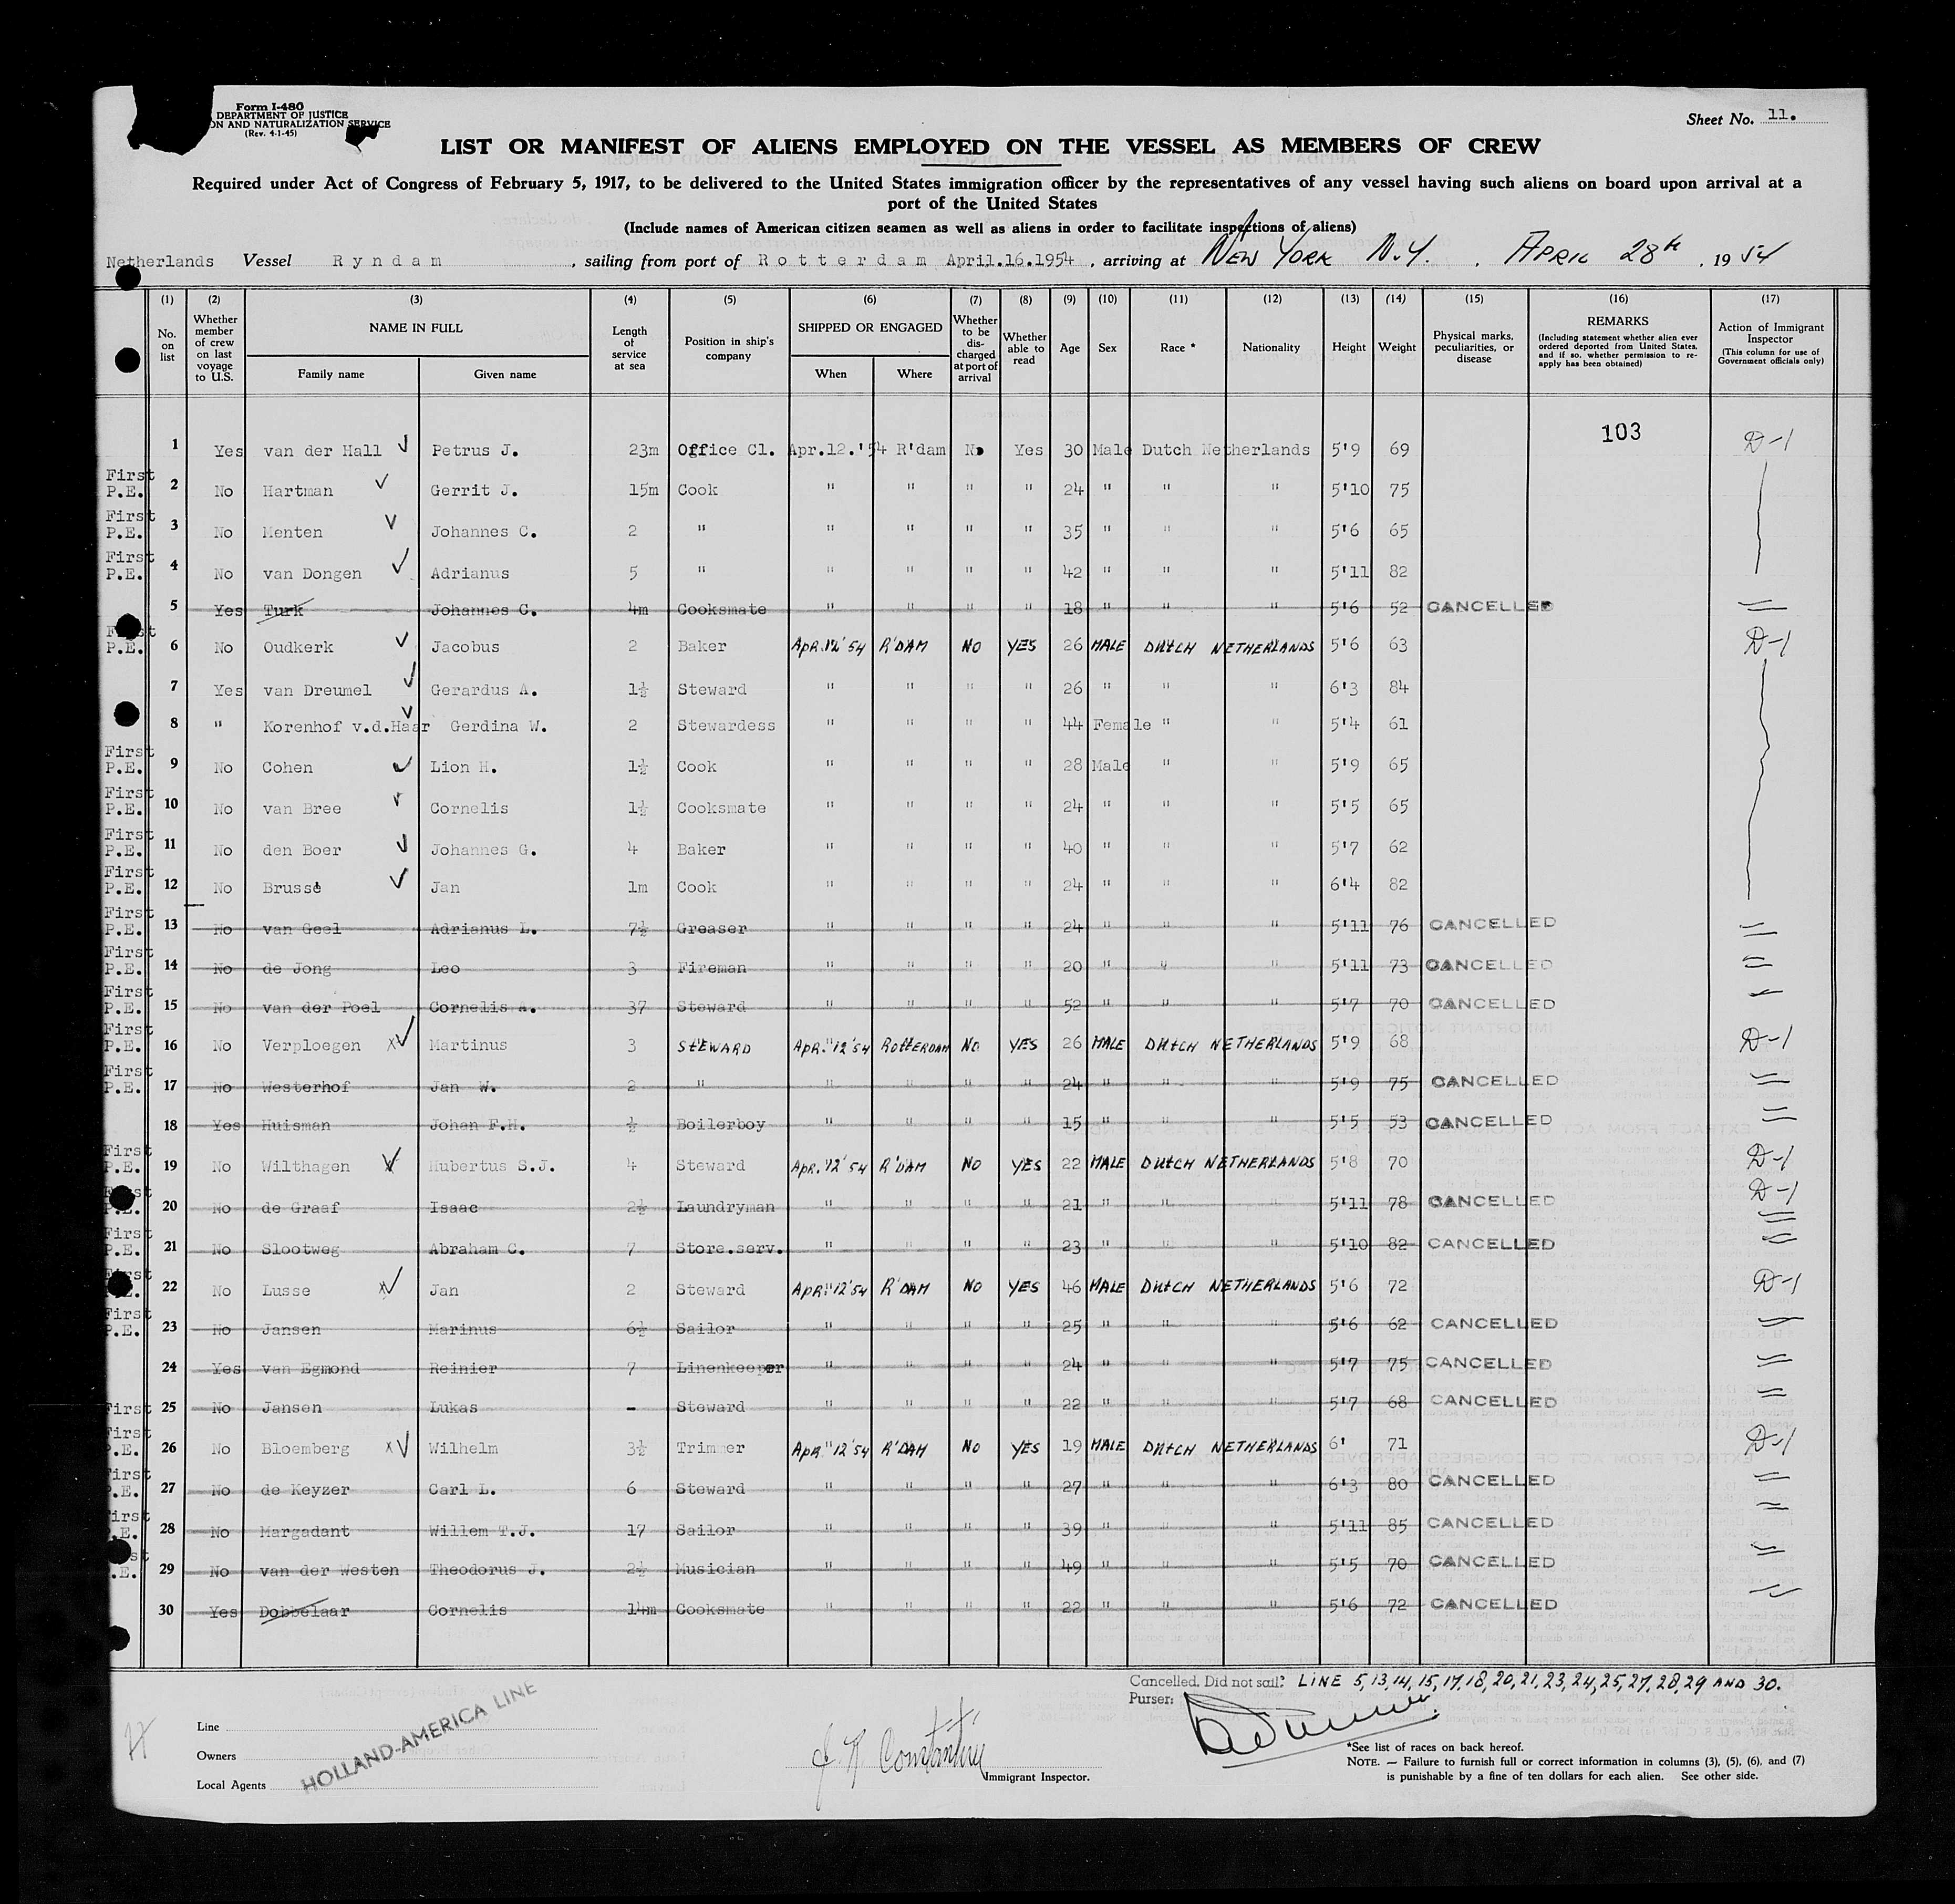 Form I-480
DEPARTMENT OF JUSTICE
ON AND NATURALIZATION SERVICE
(Rev. 4-1-45)
Sheet No. 11.
LIST OR MANIFEST OF ALIENS EMPLOYED ON THE VESSEL AS MEMBERS OF CREW
Required under Act of Congress of February 5, 1917, to be delivered to the United States immigration officer by the representatives of any vessel having such aliens on board upon arrival at a
port of the United States
(Include names of American citizen seamen as well as aliens in order to facilitate inspections of aliens)
Netherlands Vessel Ryndam, sailing from port of Rotterdam April.16.1954, arriving at NEW YORK N.Y., APRIL 28th, 1954
(1) (2) (3) (4) (5) (6) (7) (8) (9) (10) (11) (12) (13) (14) (15) (16) (17)
No. on list
Whether member of crew on last voyage to U.S.
NAME IN FULL
Family name Given name
Length of service at sea
Position in ship's company
SHIPPED OR ENGAGED
When Where
Whether to be discharged at port of arrival
Whether able to read
Age
Sex
Race *
Nationality
Height
Weight
Physical marks, peculiarities, or disease
REMARKS
(Including statement whether alien ever ordered deported from United States, and if so, whether permission to re-apply has been obtained)
Action of Immigrant Inspector
(This column for use of Government officials only)
103
1 Yes van der Hall Petrus J. 23m Office Cl. Apr.12.'54 R'dam No Yes 30 Male Dutch Netherlands 5'9 69 D-1
First P.E. 2 No Hartman Gerrit J. 15m Cook " " " " 24 " " " 5'10 75
First P.E. 3 No Menten Johannes C. 2 " " " " " 35 " " " 5'6 65
First P.E. 4 No van Dongen Adrianus 5 " " " " " 42 " " " 5'11 82
5 Yes Turk Johannes C. 4m Cooksmate " " " " 18 " " " 5'6 52 CANCELLED
First P.E. 6 No Oudkerk Jacobus 2 Baker APR.12'54 R'DAM NO YES 26 MALE DUTCH NETHERLANDS 5'6 63 D-1
7 Yes van Dreumel Gerardus A. 1½ Steward " " " " 26 " " " 6'3 84
8 " Korenhof v.d.Haar Gerdina W. 2 Stewardess " " " " 44 Female " " 5'4 61
First P.E. 9 No Cohen Lion H. 1½ Cook " " " " 28 Male " " 5'9 65
First P.E. 10 No van Bree Cornelis 1½ Cooksmate " " " " 24 " " " 5'5 65
First P.E. 11 No den Boer Johannes G. 4 Baker " " " " 40 " " " 5'7 62
First P.E. 12 No Brussé Jan 1m Cook " " " " 24 " " " 6'4 82
First P.E. 13 No van Geel Adrianus L. 7½ Greaser " " " " 24 " " " 5'11 76 CANCELLED
First P.E. 14 No de Jong Leo 3 Fireman " " " " 20 " " " 5'11 73 CANCELLED
First P.E. 15 No van der Poel Cornelis A. 37 Steward " " " " 52 " " " 5'7 70 CANCELLED
First P.E. 16 No Verploegen Martinus 3 STEWARD APR.12'54 ROTTERDAM NO YES 26 MALE DUTCH NETHERLANDS 5'9 68 D-1
First P.E. 17 No Westerhof Jan W. 2 " " " " " 24 " " " 5'9 75 CANCELLED
18 Yes Huisman Johan F.H. ½ Boilerboy " " " " 15 " " " 5'5 53 CANCELLED
First P.E. 19 No Wilthagen Hubertus S.J. 4 Steward APR.12'54 R'DAM NO YES 22 MALE DUTCH NETHERLANDS 5'8 70 D-1
First P.E. 20 No de Graaf Isaac 2½ Laundryman " " " " 21 " " " 5'11 78 CANCELLED D-1
First P.E. 21 No Slootweg Abraham C. 7 Store.serv. " " " " 23 " " " 5'10 82 CANCELLED
First P.E. 22 No Lusse Jan 2 Steward APR.12'54 R'DAM NO YES 46 MALE DUTCH NETHERLANDS 5'6 72 D-1
First P.E. 23 No Jansen Marinus 6½ Sailor " " " " 25 " " " 5'6 62 CANCELLED
24 Yes van Egmond Reinier 7 Linenkeeper " " " " 24 " " " 5'7 75 CANCELLED
First 25 No Jansen Lukas - Steward " " " " 22 " " " 5'7 68 CANCELLED
First P.E. 26 No Bloemberg Wilhelm 3½ Trimmer APR.12'54 R'DAM NO YES 19 MALE DUTCH NETHERLANDS 6' 71 D-1
First P.E. 27 No de Keyzer Carl L. 6 Steward " " " " 27 " " " 6'3 80 CANCELLED
First P.E. 28 No Margadant Willem T.J. 17 Sailor " " " " 39 " " " 5'11 85 CANCELLED
First P.E. 29 No van der Westen Theodorus J. 2½ Musician " " " " 49 " " " 5'5 70 CANCELLED
30 Yes Dobbelaar Cornelis 14m Cooksmate " " " " 22 " " " 5'6 72 CANCELLED
Cancelled. Did not sail: LINE 5,13,14,15,17,18,20,21,23,24,25,27,28,29 AND 30.
Purser:
Line
Owners
Local Agents
HOLLAND-AMERICA LINE
Immigrant Inspector.
*See list of races on back hereof.
NOTE. — Failure to furnish full or correct information in columns (3), (5), (6), and (7)
is punishable by a fine of ten dollars for each alien. See other side.